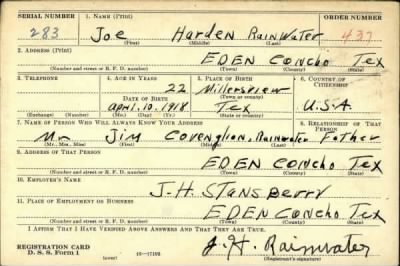 SERIAL NUMBER 1. NAME (Print) ORDER NUMBER
283 Joe Harden Rainwater 437
(First) (Middle) (Last)
2. ADDRESS (Print)
EDEN Concho Tex
(Number and street or R. F. D. number) (Town) (County) (State)
3. TELEPHONE 4. AGE IN YEARS 5. PLACE OF BIRTH 6. COUNTRY OF CITIZENSHIP
22 Millersview
DATE OF BIRTH (Town or county)
April. 10. 1918 Tex U.S.A
(Exchange) (Number) (Mo.) (Day) (Yr.) (State or country)
7. NAME OF PERSON WHO WILL ALWAYS KNOW YOUR ADDRESS 8. RELATIONSHIP OF THAT PERSON
Mr Jim Rainwater Father
(Mr., Mrs., Miss) (First) (Middle) (Last)
9. ADDRESS OF THAT PERSON
EDEN Concho Tex
(Number and street or R. F. D. number) (Town) (County) (State)
10. EMPLOYER'S NAME
J. H. Stansberry
11. PLACE OF EMPLOYMENT OR BUSINESS
EDEN Concho Tex
(Number and street or R. F. D. number) (Town) (County) (State)
I AFFIRM THAT I HAVE VERIFIED ABOVE ANSWERS AND THAT THEY ARE TRUE.
REGISTRATION CARD
D. S. S. Form 1 (over) J. H. Rainwater
(Registrant's signature)